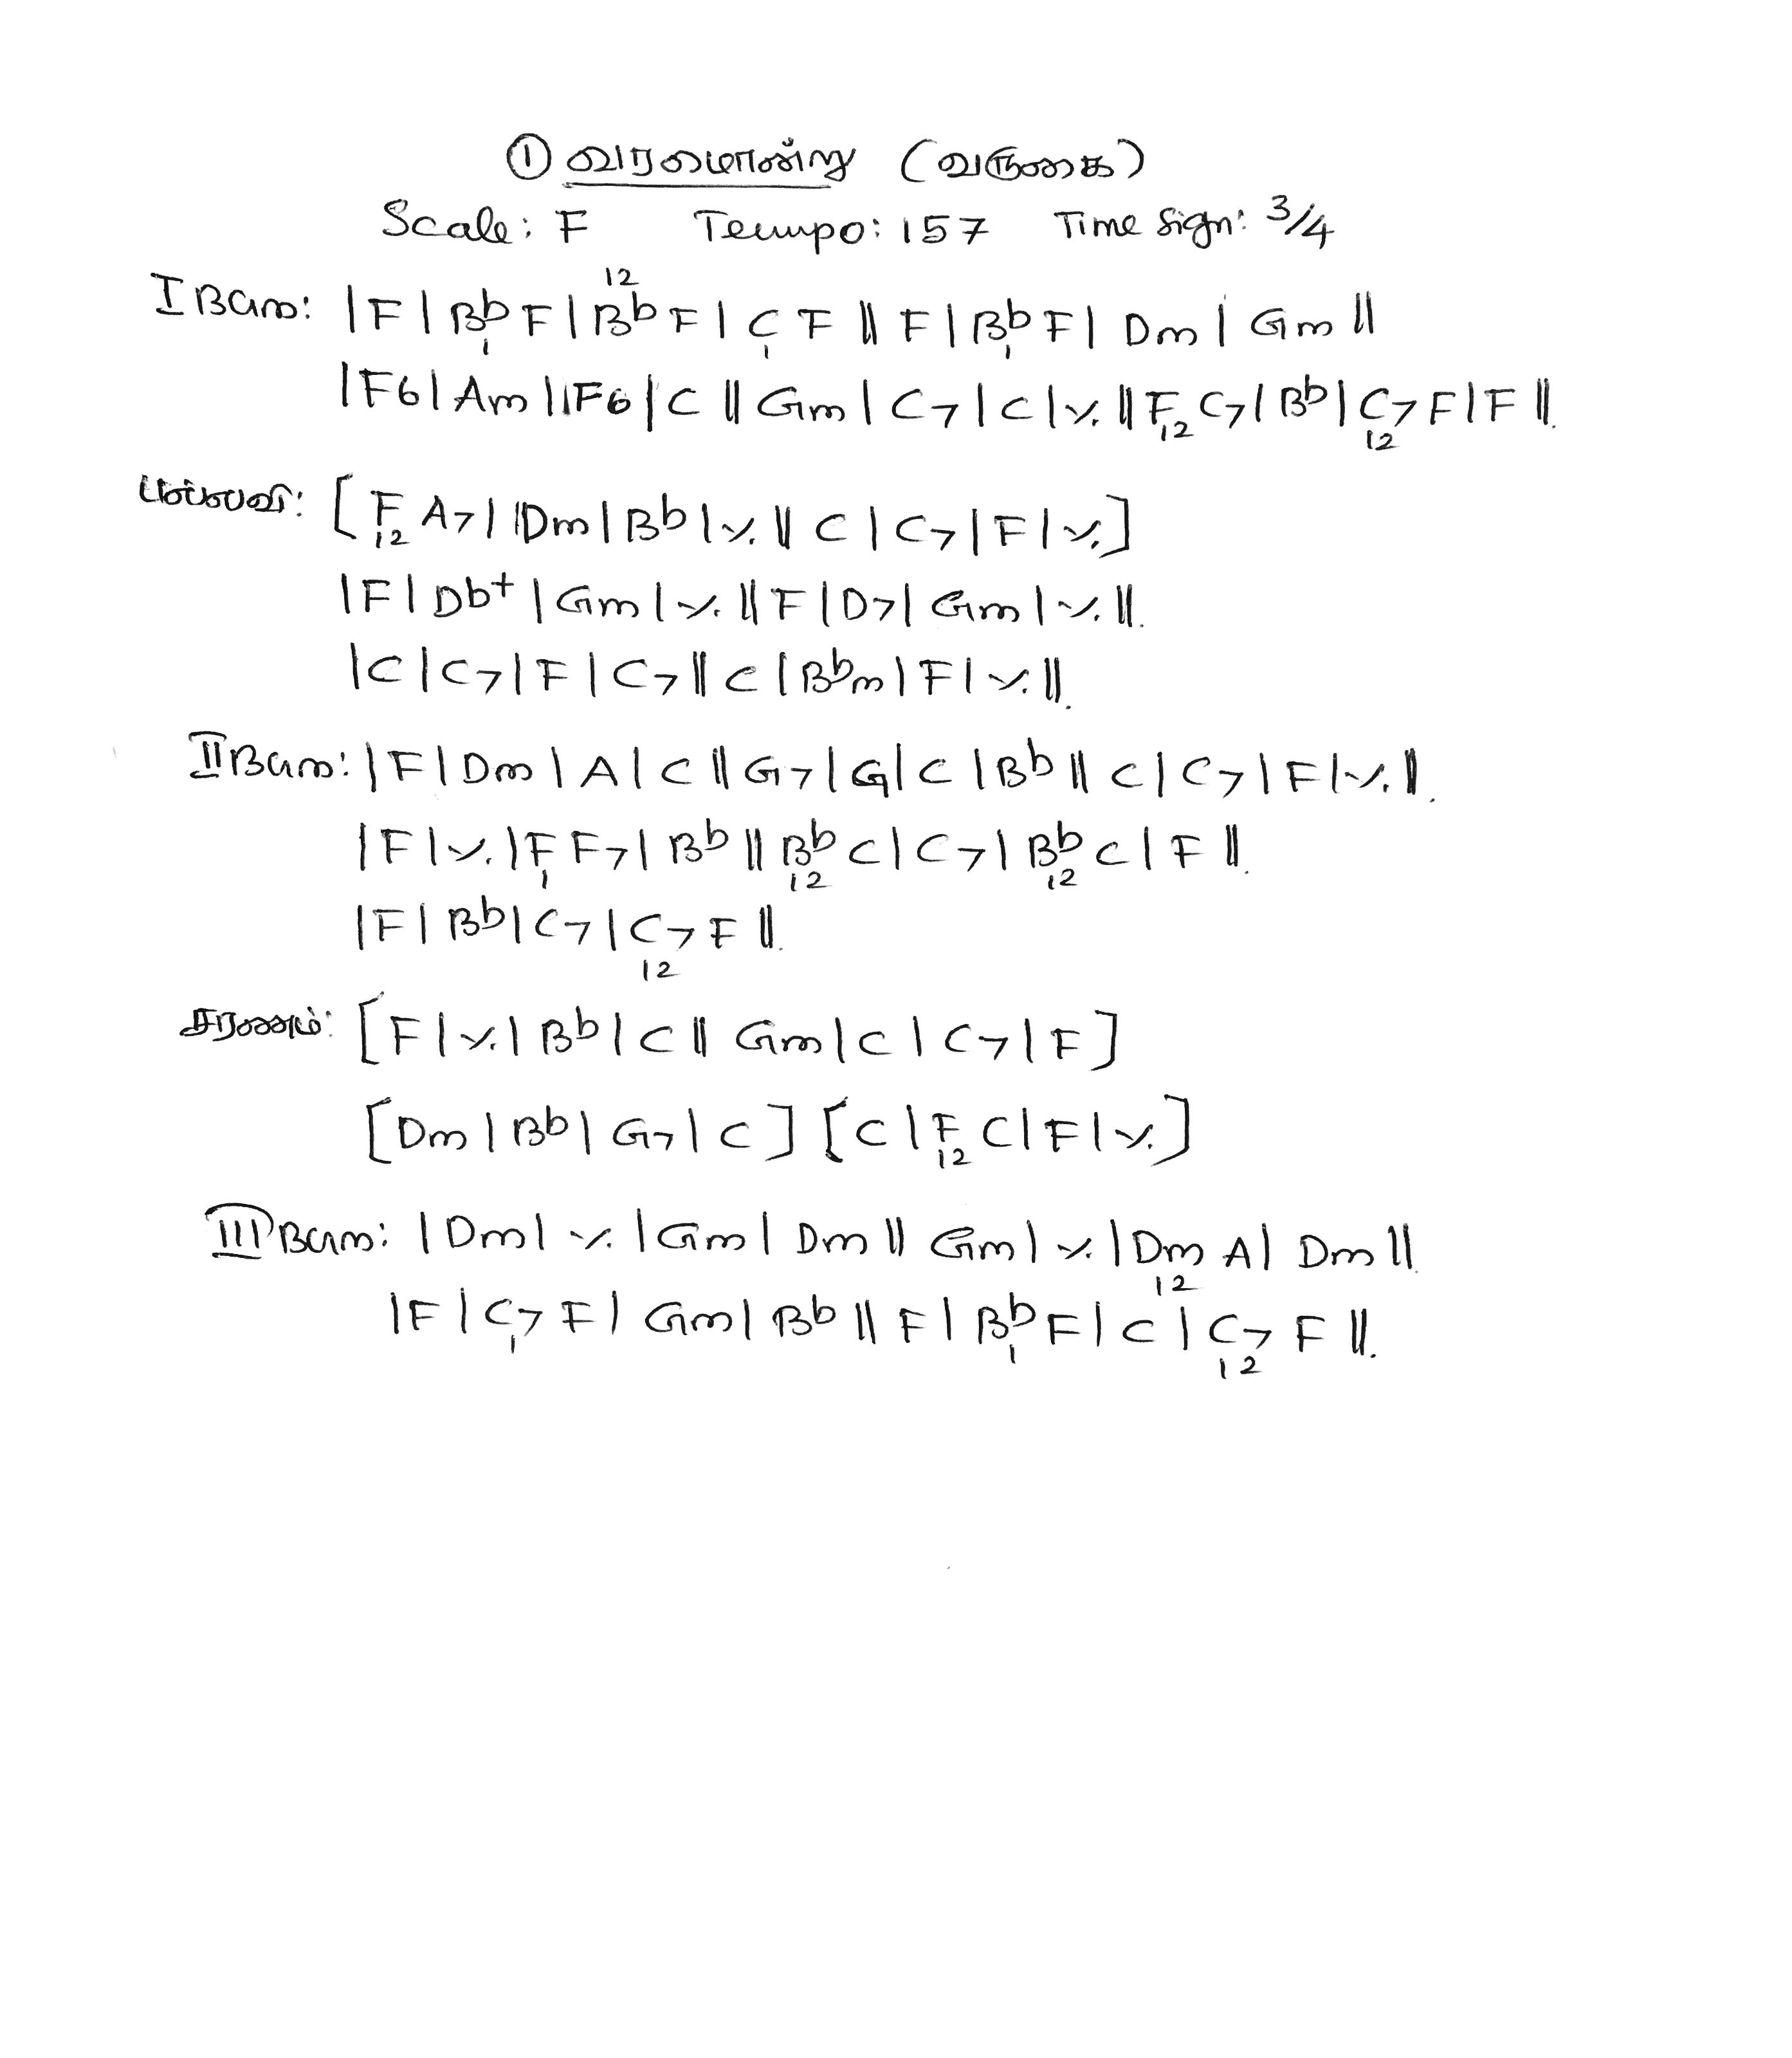 ① வரமொன்று (வருகை)
Scale: F Tempo: 157 Time Sign: 3/4
12
I BGM: | F | Bb F | Bb F | C F || F | Bb F | Dm | Gm ||
1 1 1
| F6 | Am || F6 | C || Gm | C7 | C | ٪ || F C7 | Bb | C7 F | F ||.
12 12
பல்லவி: [ F A7 | Dm | Bb | ٪ || C | C7 | F | ٪ ]
12
| F | Db+ | Gm | ٪ || F | D7 | Gm | ٪ ||.
| C | C7 | F | C7 || C | Bbm | F | ٪ ||.
II BGM: | F | Dm | A | C || G7 | G | C | Bb || C | C7 | F | ٪ ||.
| F | ٪ | F F7 | Bb || Bb C | C7 | Bb C | F ||.
1 12 12
| F | Bb | C7 | C7 F ||.
12
சரணம்: [ F | ٪ | Bb | C || Gm | C | C7 | F ]
[ Dm | Bb | G7 | C ] [ C | F C | F | ٪ ]
12
III BGM: | Dm | ٪ | Gm | Dm || Gm | ٪ | Dm A | Dm ||.
12
| F | C7 F | Gm | Bb || F | Bb F | C | C7 F ||.
1 1 12